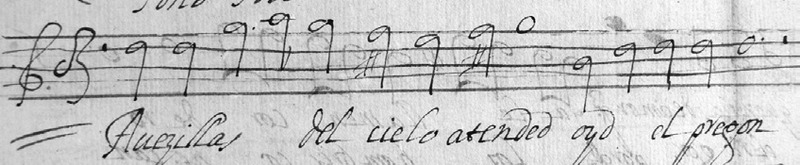 Auezillas del cielo atended oyd el pregon